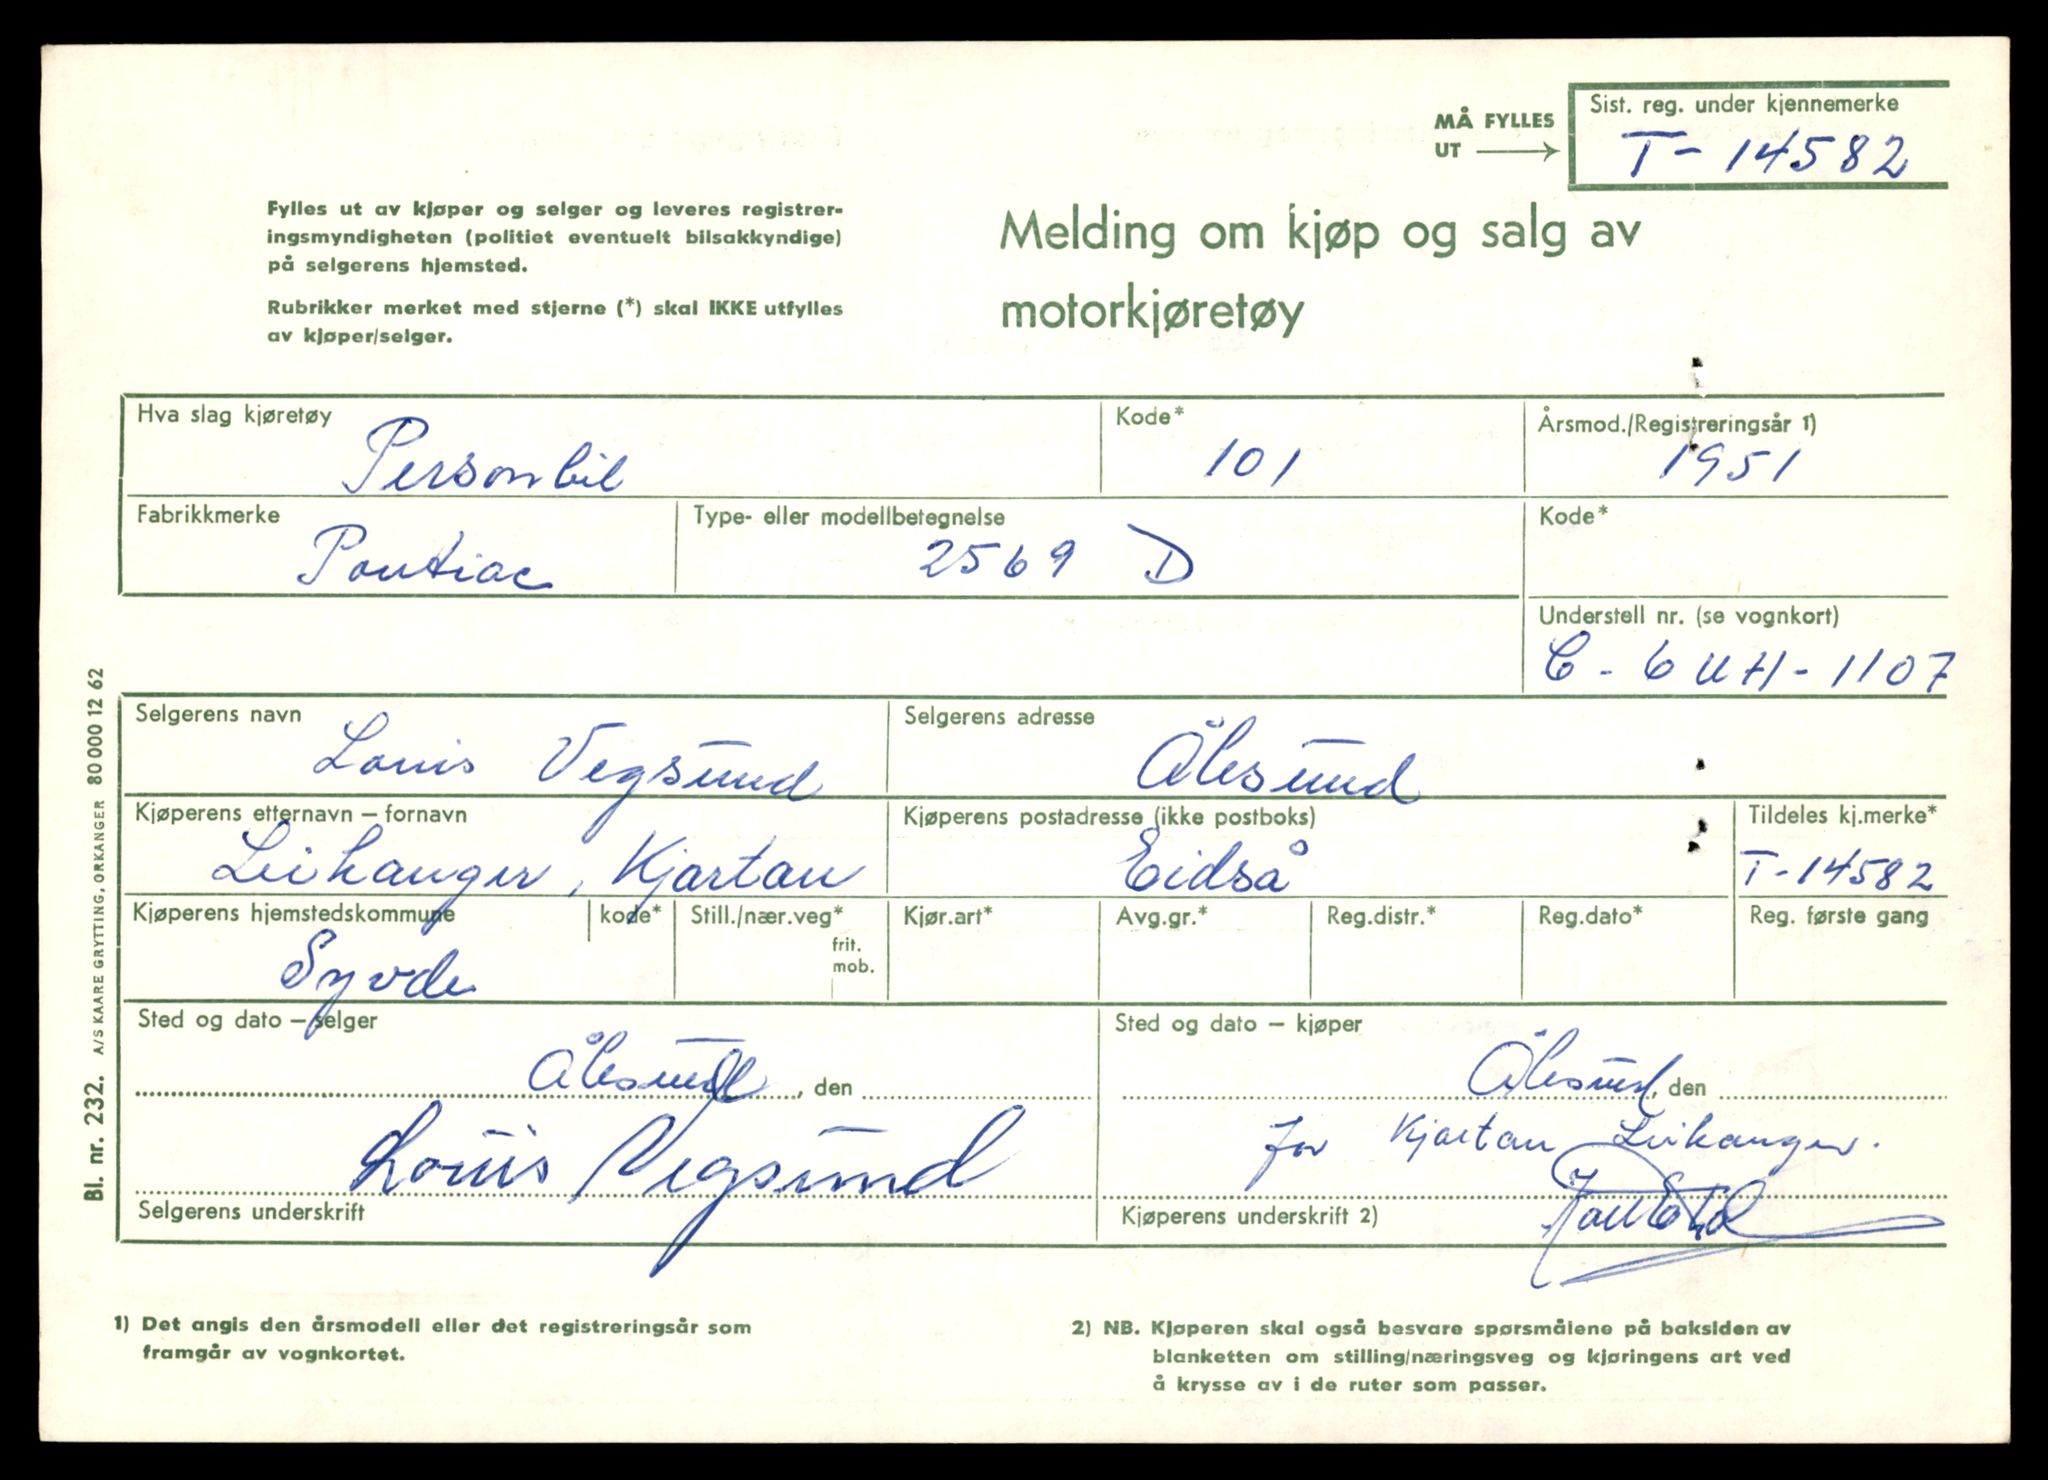 MÅ FYLLES
UT
Sist. reg. under kjennemerke
T-14582
Fylles ut av kjøper og selger og leveres registrer-
ingsmyndigheten (politiet eventuelt bilsakkyndige)
på selgerens hjemsted.
Rubrikker merket med stjerne (*) skal IKKE utfylles
av kjøper/selger.
Melding om kjøp og salg av
motorkjøretøy
Hva slag kjøretøy
Personbil
Kode*
101
Årsmod./Registreringsår 1)
1951
Fabrikkmerke
Pontiac
Type- eller modellbetegnelse
2569 D
Kode*
Understell nr. (se vognkort)
C-6UH-1107
Selgerens navn
Louis Vegsund
Selgerens adresse
Ålesund
Kjøperens etternavn – fornavn
Leikanger, Kjartan
Kjøperens postadresse (ikke postboks)
Eidså
Tildeles kj.merke*
T-14582
Kjøperens hjemstedskommune
Syvde
kode*
Still./nær.veg*
frit.
mob.
Kjør.art*
Avg.gr.*
Reg.distr.*
Reg.dato*
Reg. første gang
Sted og dato – selger
Ålesund, den
Louis Vegsund
Selgerens underskrift
Sted og dato – kjøper
Ålesund, den
for Kjartan Leikanger.
Kjøperens underskrift 2)
1) Det angis den årsmodell eller det registreringsår som
framgår av vognkortet.
2) NB. Kjøperen skal også besvare spørsmålene på baksiden av
blanketten om stilling/næringsveg og kjøringens art ved
å krysse av i de ruter som passer.
Bl. nr. 232. A/S KAARE GRYTTING, ORKANGER 80 000 12 62